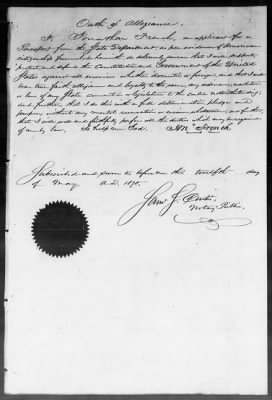 Oath of Allegiance.
I, Jonathan French, an applicant for a
Passport from the State Department, as per evidence of American
citizenship furnished herewith, do solemnly swear that I will support,
protect and defend the Constitution and Government of the United
States against all enemies whether domestic or foreign, and that I will
bear true faith, allegiance and loyalty to the same, any ordinance, resolution
or law of any State convention or legislature to the contrary notwithstanding;
and further, that I do this with a full determination, pledge and
purpose, without any mental reservation or evasion whatsoever, and further,
that I will well and faithfully perform all the duties which may be required
of me by law. So help me God.
Jon French
Subscribed and sworn to before me this twelfth day
of May A.D. 1875.
Saml J.
Notary Public